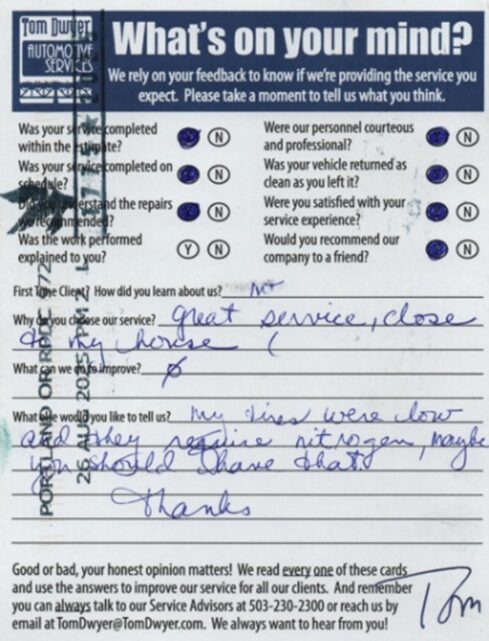 Tom Dwyer
AUTOMOTIVE
SERVICES
What's on your mind?
We rely on your feedback to know if we're providing the service you
expect. Please take a moment to tell us what you think.
Was your service completed
within the estimate? Y N
Was your service completed on
schedule? Y N
Did you understand the repairs
we recommended? Y N
Was the work performed
explained to you? Y N
Were our personnel courteous
and professional? Y N
Was your vehicle returned as
clean as you left it? Y N
Were you satisfied with your
service experience? Y N
Would you recommend our
company to a friend? Y N
First Time Client? How did you learn about us?
Why do you choose our service? great service, close
to my house (
What can we do to improve? Ø
What else would you like to tell us? my tires were low
and they require nitrogen, maybe
you should have that.
Thanks
Good or bad, your honest opinion matters! We read every one of these cards
and use the answers to improve our service for all our clients. And remember
you can always talk to our Service Advisors at 503-230-2300 or reach us by
email at TomDwyer@TomDwyer.com. We always want to hear from you!
Tom
PORTLAND OR RPDC 972
26 AUG 2025 PM 2 L